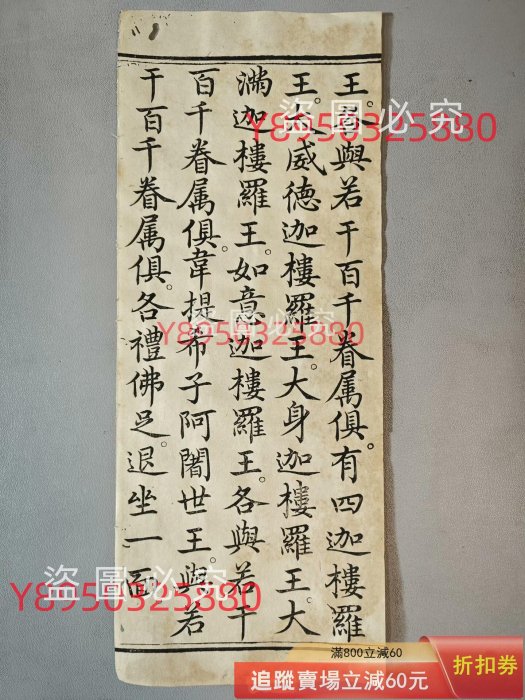 王。各與若干百千眷属俱。有四迦樓羅
王。大威德迦樓羅王。大身迦樓羅王。大
滿迦樓羅王。如意迦樓羅王。各與若干
百千眷属俱。韋提希子阿闍世王。與若
干百千眷属俱。各禮佛足。退坐一面
盜圖必究
Y8950325880
盜圖必究
Y8950325880
盜圖必究
Y8950325880
滿800立減60
追蹤賣場立減60元
折扣券